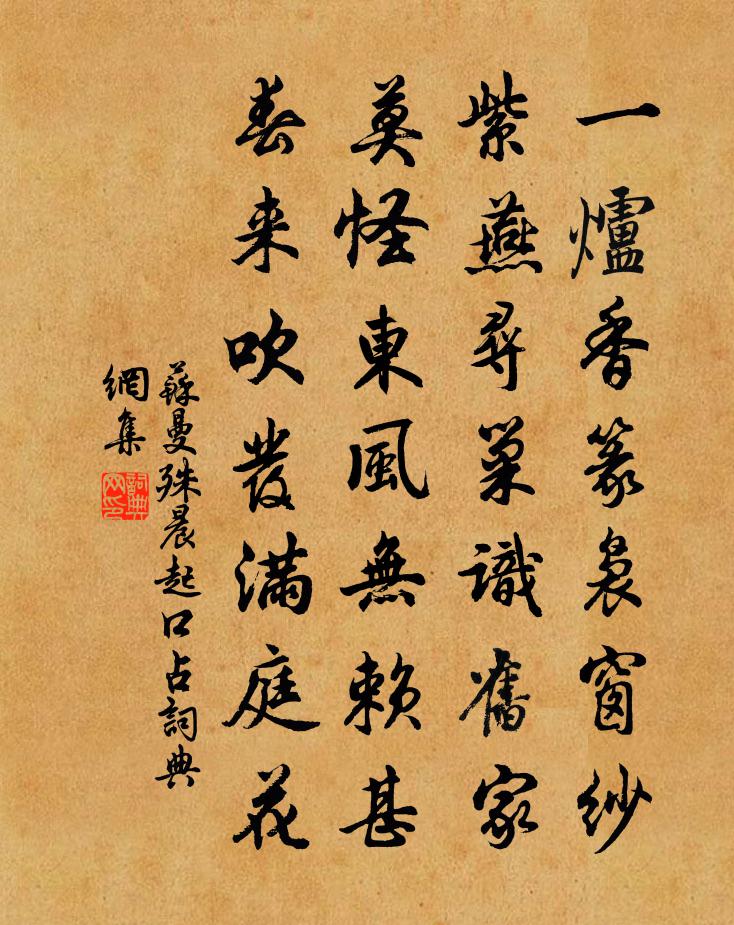 一爐香篆裊窗紗
紫燕尋巢識舊家
莫怪東風無賴甚
春来吹發滿庭花
蘇曼殊晨起口占詞典
網集
詞典網印